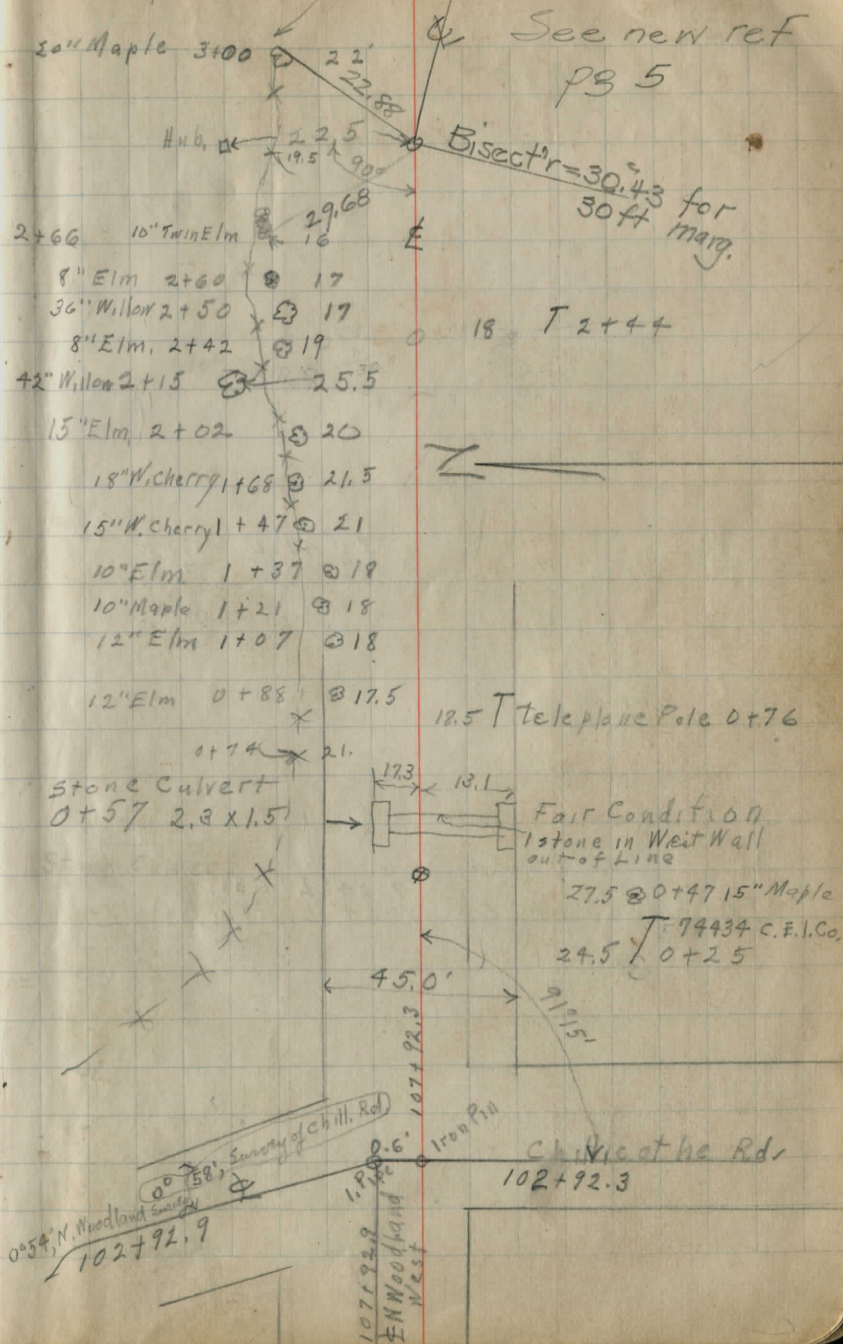 See new ref
pg 5
20" Maple 3+00 22'
22.88
Hub. 22.5
19.5 90°
Bisect'r=30.43
30ft for
marg.
29.68
2+66 10" Twin Elm 16
8" Elm 2+60 17
36" Willow 2+50 17
18 T 2+44
8" Elm, 2+42 19
42" Willow 2+15 25.5
15" Elm 2+02 20
18" W.Cherry 1+68 21.5
15" W.Cherry 1+47 21
10" Elm 1+37 18
10" Maple 1+21 18
12" Elm 1+07 18
12" Elm 0+88 17.5
18.5 T telephone Pole 0+76
0+74 21.
17.3 13.1
Stone Culvert
0+57 2.3 x 1.5
Fair Condition
1 stone in West Wall
out of Line
27.5 0+47 15" Maple
T 74434 C.E.I.Co.
24.5 0+25
45.0'
91°15'
107+92.3
Iron Pin
0.6'
I.P.
Chillicothe Rd.
102+92.3
0°58', Survey of Chill. Rd
0°54', N. Woodland Survey
102+92.9
107+92.9
℄ N Woodland
West